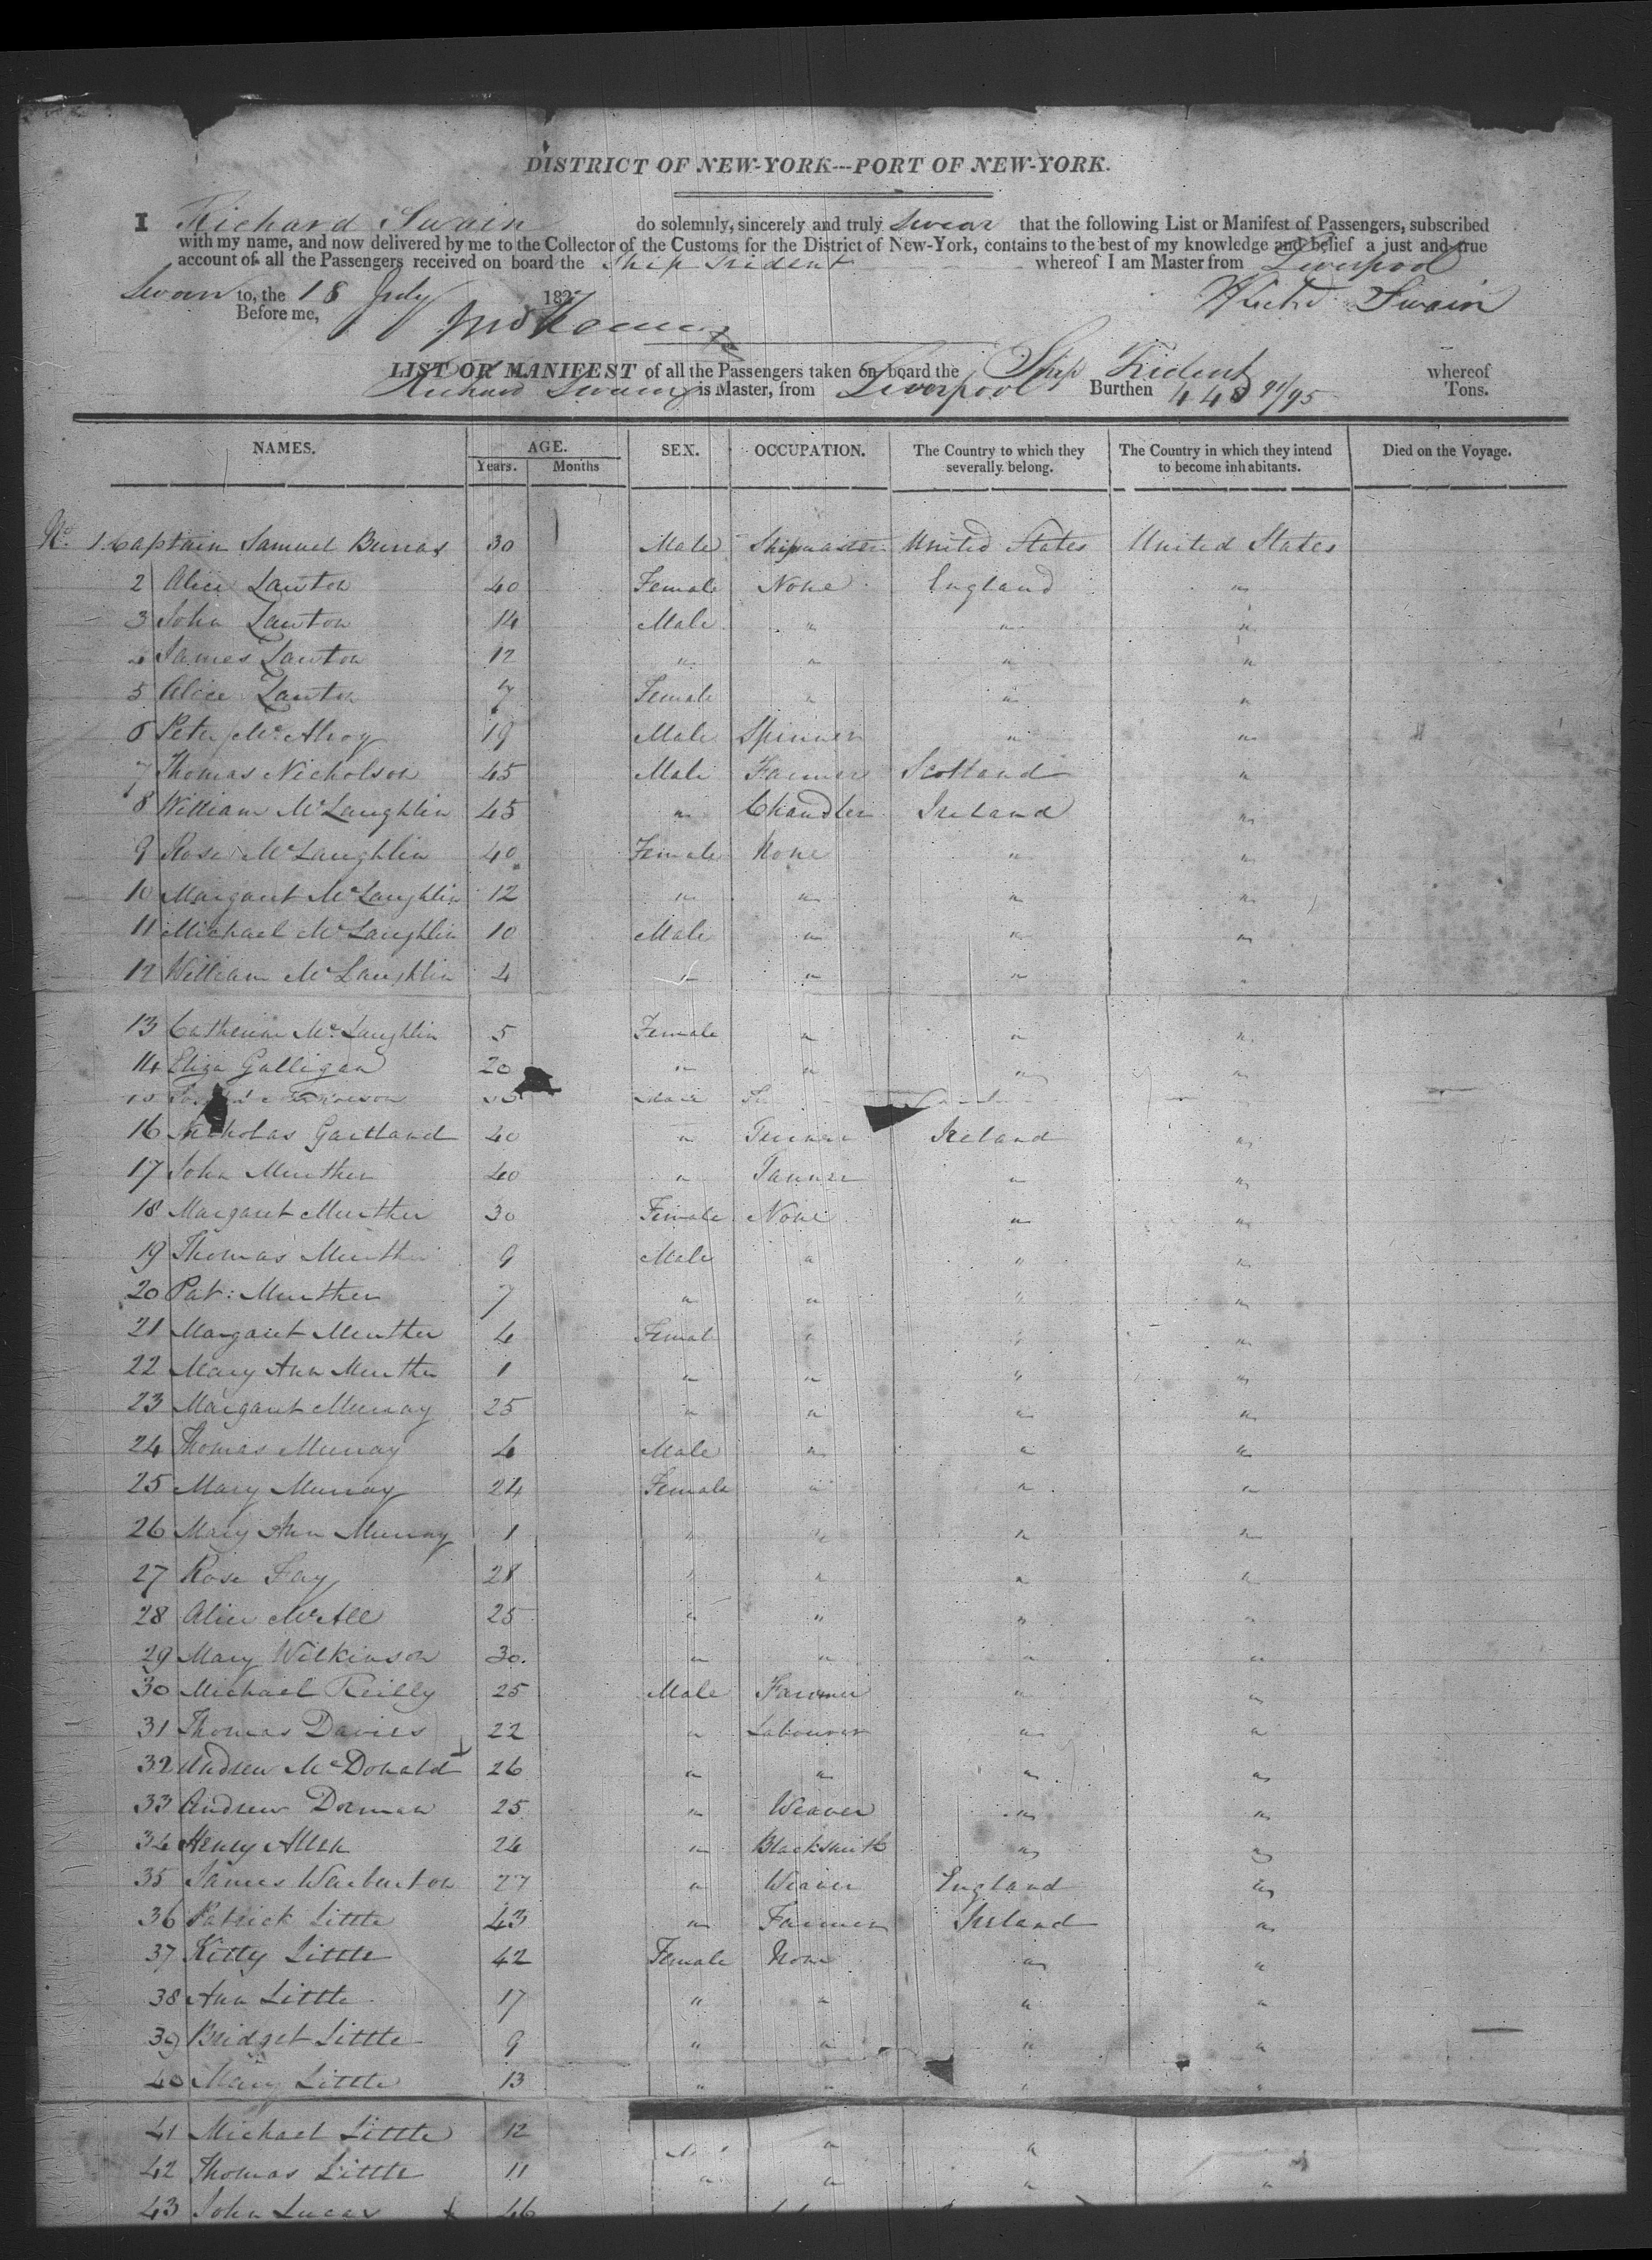 DISTRICT OF NEW-YORK---PORT OF NEW-YORK.
I Richard Swain do solemnly, sincerely and truly Swear that the following List or Manifest of Passengers, subscribed
with my name, and now delivered by me to the Collector of the Customs for the District of New-York, contains to the best of my knowledge and belief a just and true
account of all the Passengers received on board the Ship Trident whereof I am Master from Liverpool
Sworn to, the 18 July 182 Richd Swain
Before me,
LIST OR MANIFEST of all the Passengers taken on board the Ship Trident whereof
Richard Swain is Master, from Liverpool Burthen 448 91/95 Tons.
NAMES. AGE. SEX. OCCUPATION. The Country to which they severally belong. The Country in which they intend to become inhabitants. Died on the Voyage.
Years. Months
No. 1. Captain Samuel 30 Male Shipmaster United States United States
2 Alice Lawton 40 Female None England "
3 John Lawton 14 Male " " "
4 James Lawton 12 " " " "
5 Alice Lawton 7 Female " " "
6 Peter 19 Male Spinner " "
7 Thomas Nicholson 45 Male Farmer Scotland "
8 William McLaughlin 45 " Chandler Ireland "
9 Rose McLaughlin 40 Female None " "
10 Margaret McLaughlin 12 " " " "
11 Michael McLaughlin 10 Male " " "
12 William McLaughlin 4 " " " "
13 Catherine McLaughlin 5 Female " " "
14 Eliza Galligan 20 " " " "
Male
16 Nicholas Gartland 40 " Ireland "
17 John Minther 40 " Tanner " "
18 Margaret Minther 30 Female None " "
19 Thomas Minther 9 Male " " "
20 Pat: Minther 7 " " " "
21 Margaret Minther 4 Female " " "
22 Mary Ann Minther 1 " " " "
23 Margaret Murray 25 " " " "
24 Thomas Murray 4 Male " " "
25 Mary Murray 24 Female " " "
26 Mary Ann Murray 1 " " " "
27 Rose Fay 28 " " " "
28 Alice McAll 25 " " " "
29 Mary Wilkinson 30. " " " "
30 Michael Reilly 25 Male Farmer " "
31 Thomas Davies 22 " Labourer " "
32 Andrew McDonald 26 " " " "
33 Andrew Dorman 25 " Weaver " "
34 Henry Allen 24 " Blacksmith " "
35 James Warburton 27 " Weaver England "
36 Patrick Little 43 " Farmer Ireland "
37 Kitty Little 42 Female None " "
38 Ann Little 17 " " " "
39 Bridget Little 9 " " " "
40 Mary Little 13 " " " "
41 Michael Little 12 " "
42 Thomas Little 11 " " " "
43 John Lucas 46